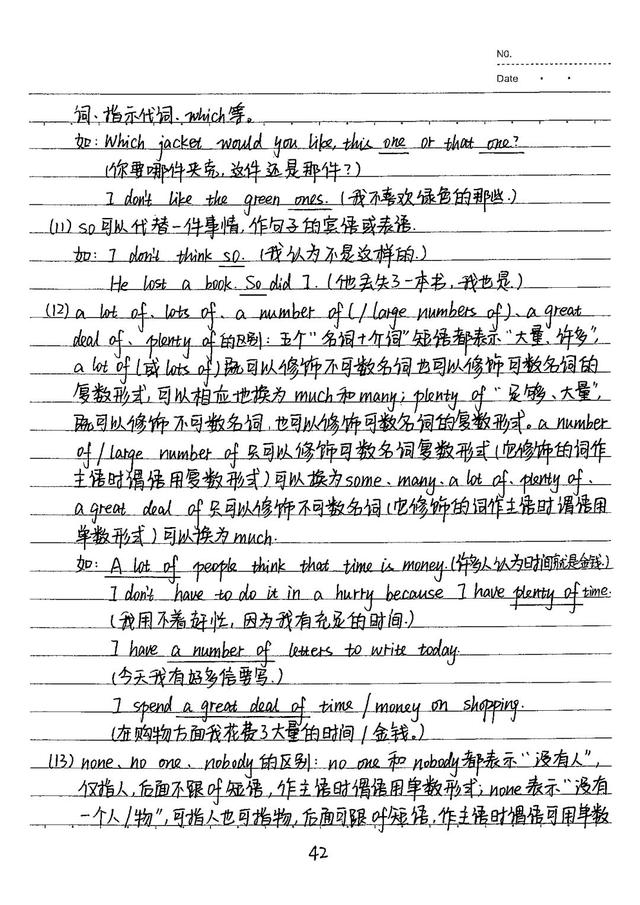 NO.
Date
词、指示代词、which等。
如: Which jacket would you like, this one or that one?
(你要哪件夹克,这件还是那件?)
I don't like the green ones. (我不喜欢绿色的那些.)
(11) so可以代替一件事情,作句子的宾语或表语.
如: I don't think so. (我认为不是这样的.)
He lost a book. So did I. (他丢失了一本书,我也是.)
(12) a lot of、lots of、a number of (/ large numbers of)、a great
deal of、plenty of的区别: 五个“名词+介词”短语都表示“大量、许多”,
a lot of (或 lots of)既可以修饰不可数名词也可以修饰可数名词的
复数形式,可以相应地换为 much和many; plenty of “足够、大量”,
既可以修饰不可数名词,也可以修饰可数名词的复数形式。a number
of / large number of 只可以修饰可数名词复数形式(它修饰的词作
主语时谓语用复数形式)可以换为some、many、a lot of、plenty of.
a great deal of 只可以修饰不可数名词(它修饰的词作主语时谓语用
单数形式)可以换为much.
如: A lot of people think that time is money. (许多人认为时间就是金钱.)
I don't have to do it in a hurry because I have plenty of time.
(我用不着赶忙,因为我有充足的时间.)
I have a number of letters to write today.
(今天我有好多信要写.)
I spend a great deal of time / money on shopping.
(在购物方面我花费了大量的时间/金钱。)
(13) none、no one、nobody的区别: no one 和 nobody都表示“没有人”,
仅指人,后面不跟of短语,作主语时谓语用单数形式; none 表示“没有
一个人/物”,可指人也可指物,后面可跟of短语,作主语时谓语可用单数
42